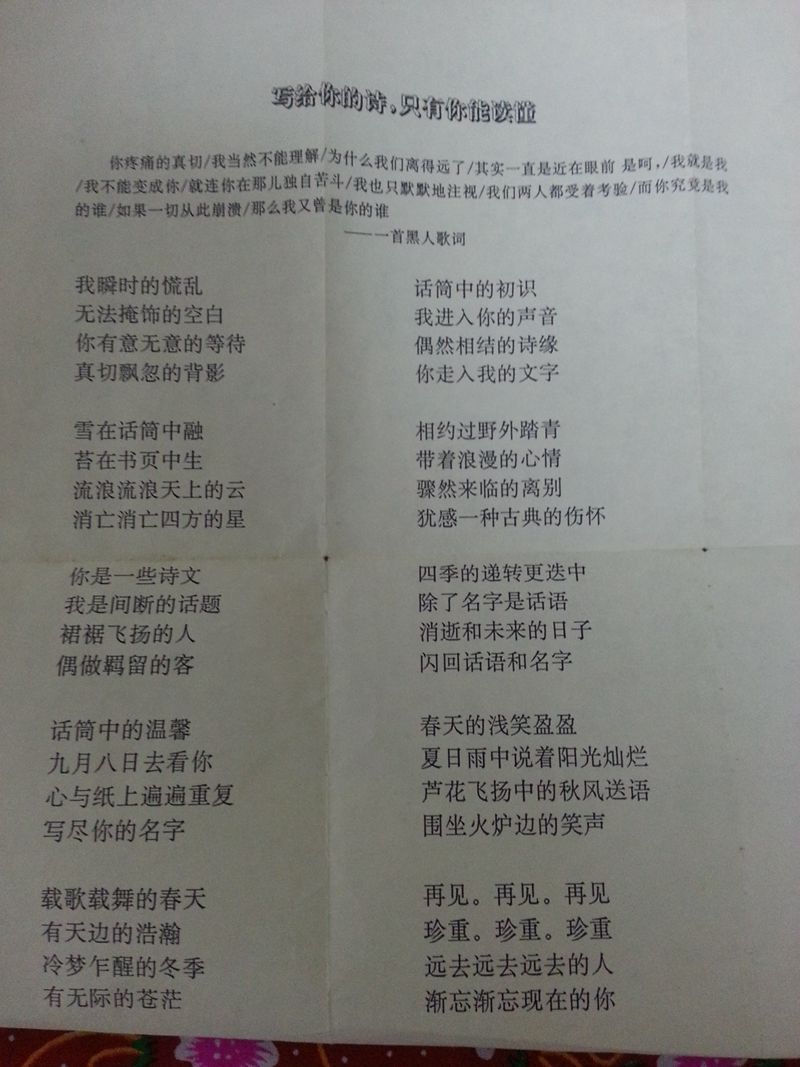 写给你的诗,只有你能读懂
你疼痛的真切/我当然不能理解/为什么我们离得远了/其实一直是近在眼前 是呵,/我就是我
/我不能变成你/就连你在那儿独自苦斗/我也只默默地注视/我们两人都受着考验/而你究竟是我
的谁/如果一切从此崩溃/那么我又曾是你的谁
——一首黑人歌词
我瞬时的慌乱
无法掩饰的空白
你有意无意的等待
真切飘忽的背影
雪在话筒中融
苔在书页中生
流浪流浪天上的云
消亡消亡四方的星
你是一些诗文
我是间断的话题
裙裾飞扬的人
偶做羁留的客
话筒中的温馨
九月八日去看你
心与纸上遍遍重复
写尽你的名字
载歌载舞的春天
有天边的浩瀚
冷梦乍醒的冬季
有无际的苍茫
话筒中的初识
我进入你的声音
偶然相结的诗缘
你走入我的文字
相约过野外踏青
带着浪漫的心情
骤然来临的离别
犹感一种古典的伤怀
四季的递转更迭中
除了名字是话语
消逝和未来的日子
闪回话语和名字
春天的浅笑盈盈
夏日雨中说着阳光灿烂
芦花飞扬中的秋风送语
围坐火炉边的笑声
再见。再见。再见
珍重。珍重。珍重
远去远去远去的人
渐忘渐忘现在的你